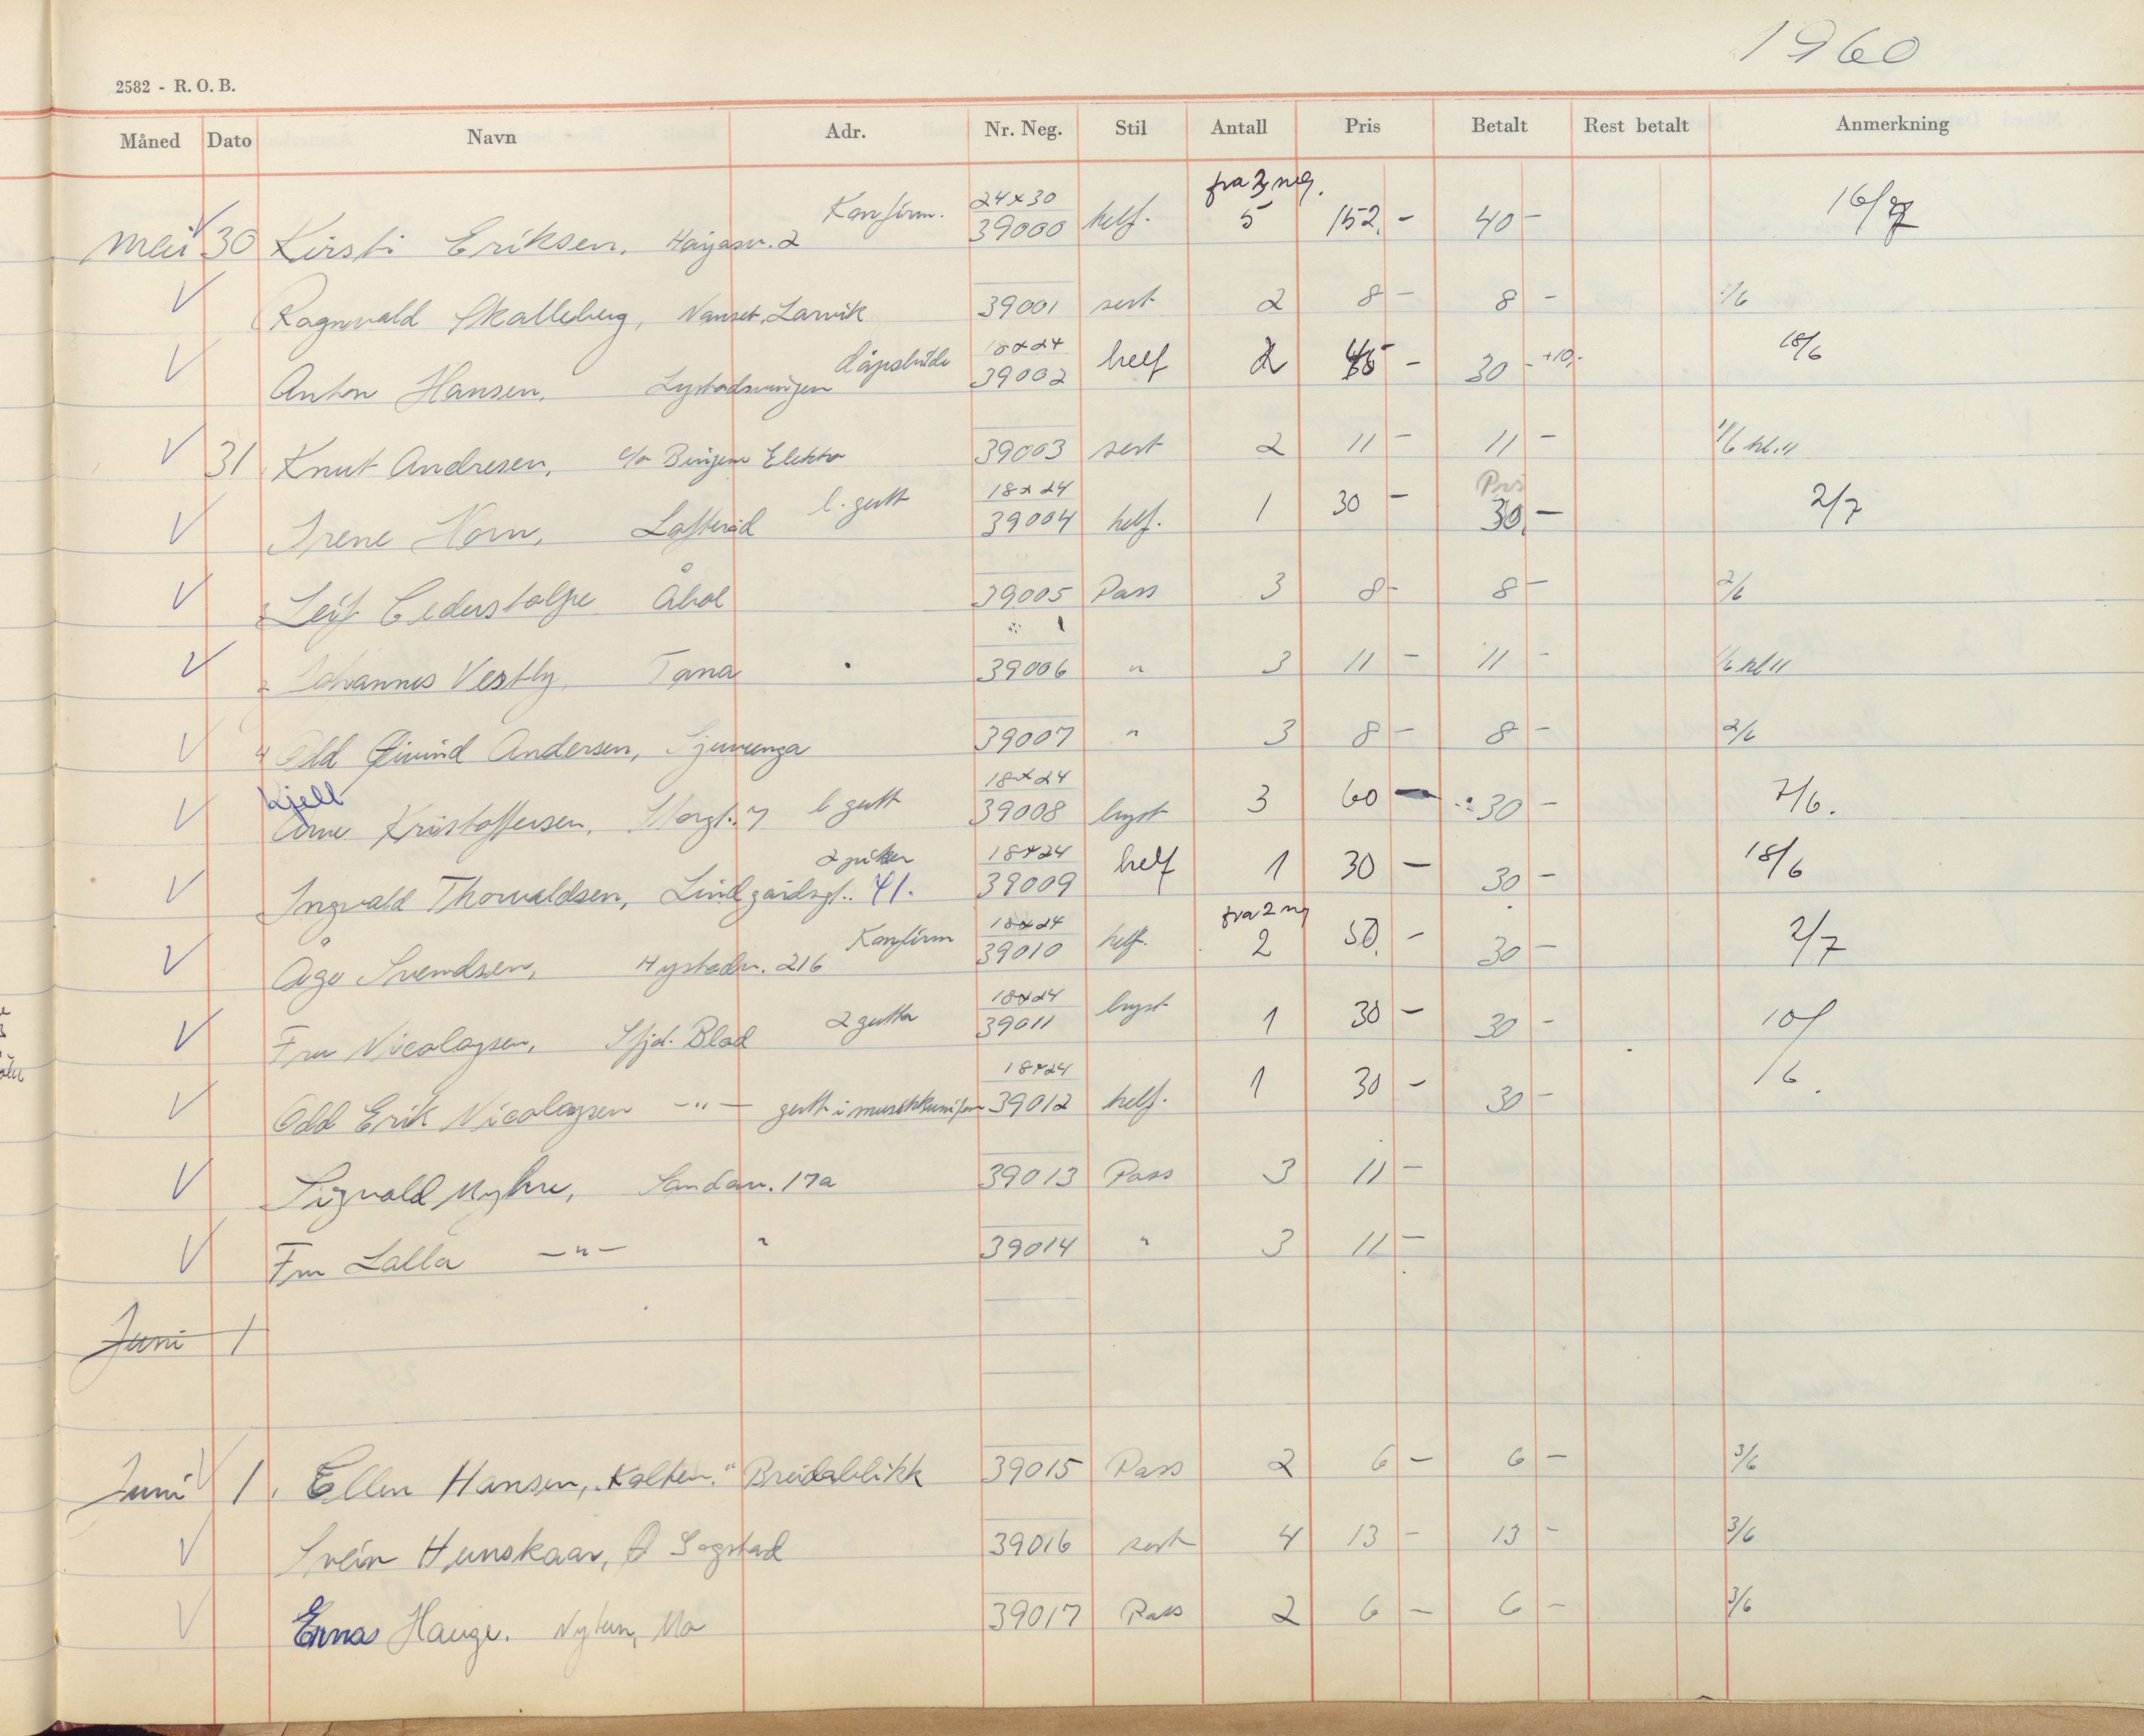 1960
2582 - R. O. B.
Måned Dato Navn Adr. Nr. Neg. Stil Antall Pris Betalt Rest betalt Anmerkning
fra 3 neg.
Konfirm. 24x30
Mai 30 Kirsti Eriksen, 2 39000 helf. 5 152.- 40- 16/7
Ragnvald Skalleberg, Nanset, Larvik 39001 sert 2 8- 8-
dåpsbilde 18x24
Anton Hansen, 39002 helf 2 - 30- +10,- 18/6
31 Knut Andresen, c/o Bingens Elektro 39003 sert 2 11- 11- 1/6 kl. 11
l. gutt 18x24
Irene Horn, 39004 helf. 1 30- 30.- 2/7
Leif Cederstolpe Åbol 39005 Pass 3 8- 8- 2/6
Johannes Vestby, Tana 39006 " 3 11- 11- 1/6 kl 11
Odd Øivind Andersen, 39007 " 3 8- 8- 2/6
Kjell l gutt 18x24
Arne Kristoffersen, Storgt. 7 39008 bryst 3 60- 30- 7/6.
2 piker 18x24
Ingvald Thorvaldsen, Lindgårdsgt.. 41. 39009 helf 1 30- 30- 18/6
fra 2 neg
Konfirm 18x24
Åge Svendsen, Hystadv. 216 39010 helf. 2 50.- 30- 2/7
2 gutter 18x24
Fru Nicolaysen, Sfjd. Blad 39011 bryst 1 30- 30- 10/
18x24
Odd Erik Nicolaysen -"- gutt i musikkuniform 39012 helf. 1 30- 30- /6.
Sigvald Myhre, Sandav. 17a 39013 Pass 3 11-
Fru Lalla -"- " 39014 " 3 11-
Juni 1
Juni 1. Ellen Hansen, "Kolken." Breidablikk 39015 Pass 2 6- 6- 3/6
Svein Hunskaar, Ø Sogstad 39016 sert 4 13- 13- 3/6
Ernas Hauge. Mo 39017 Pass 2 6- 6- 3/6